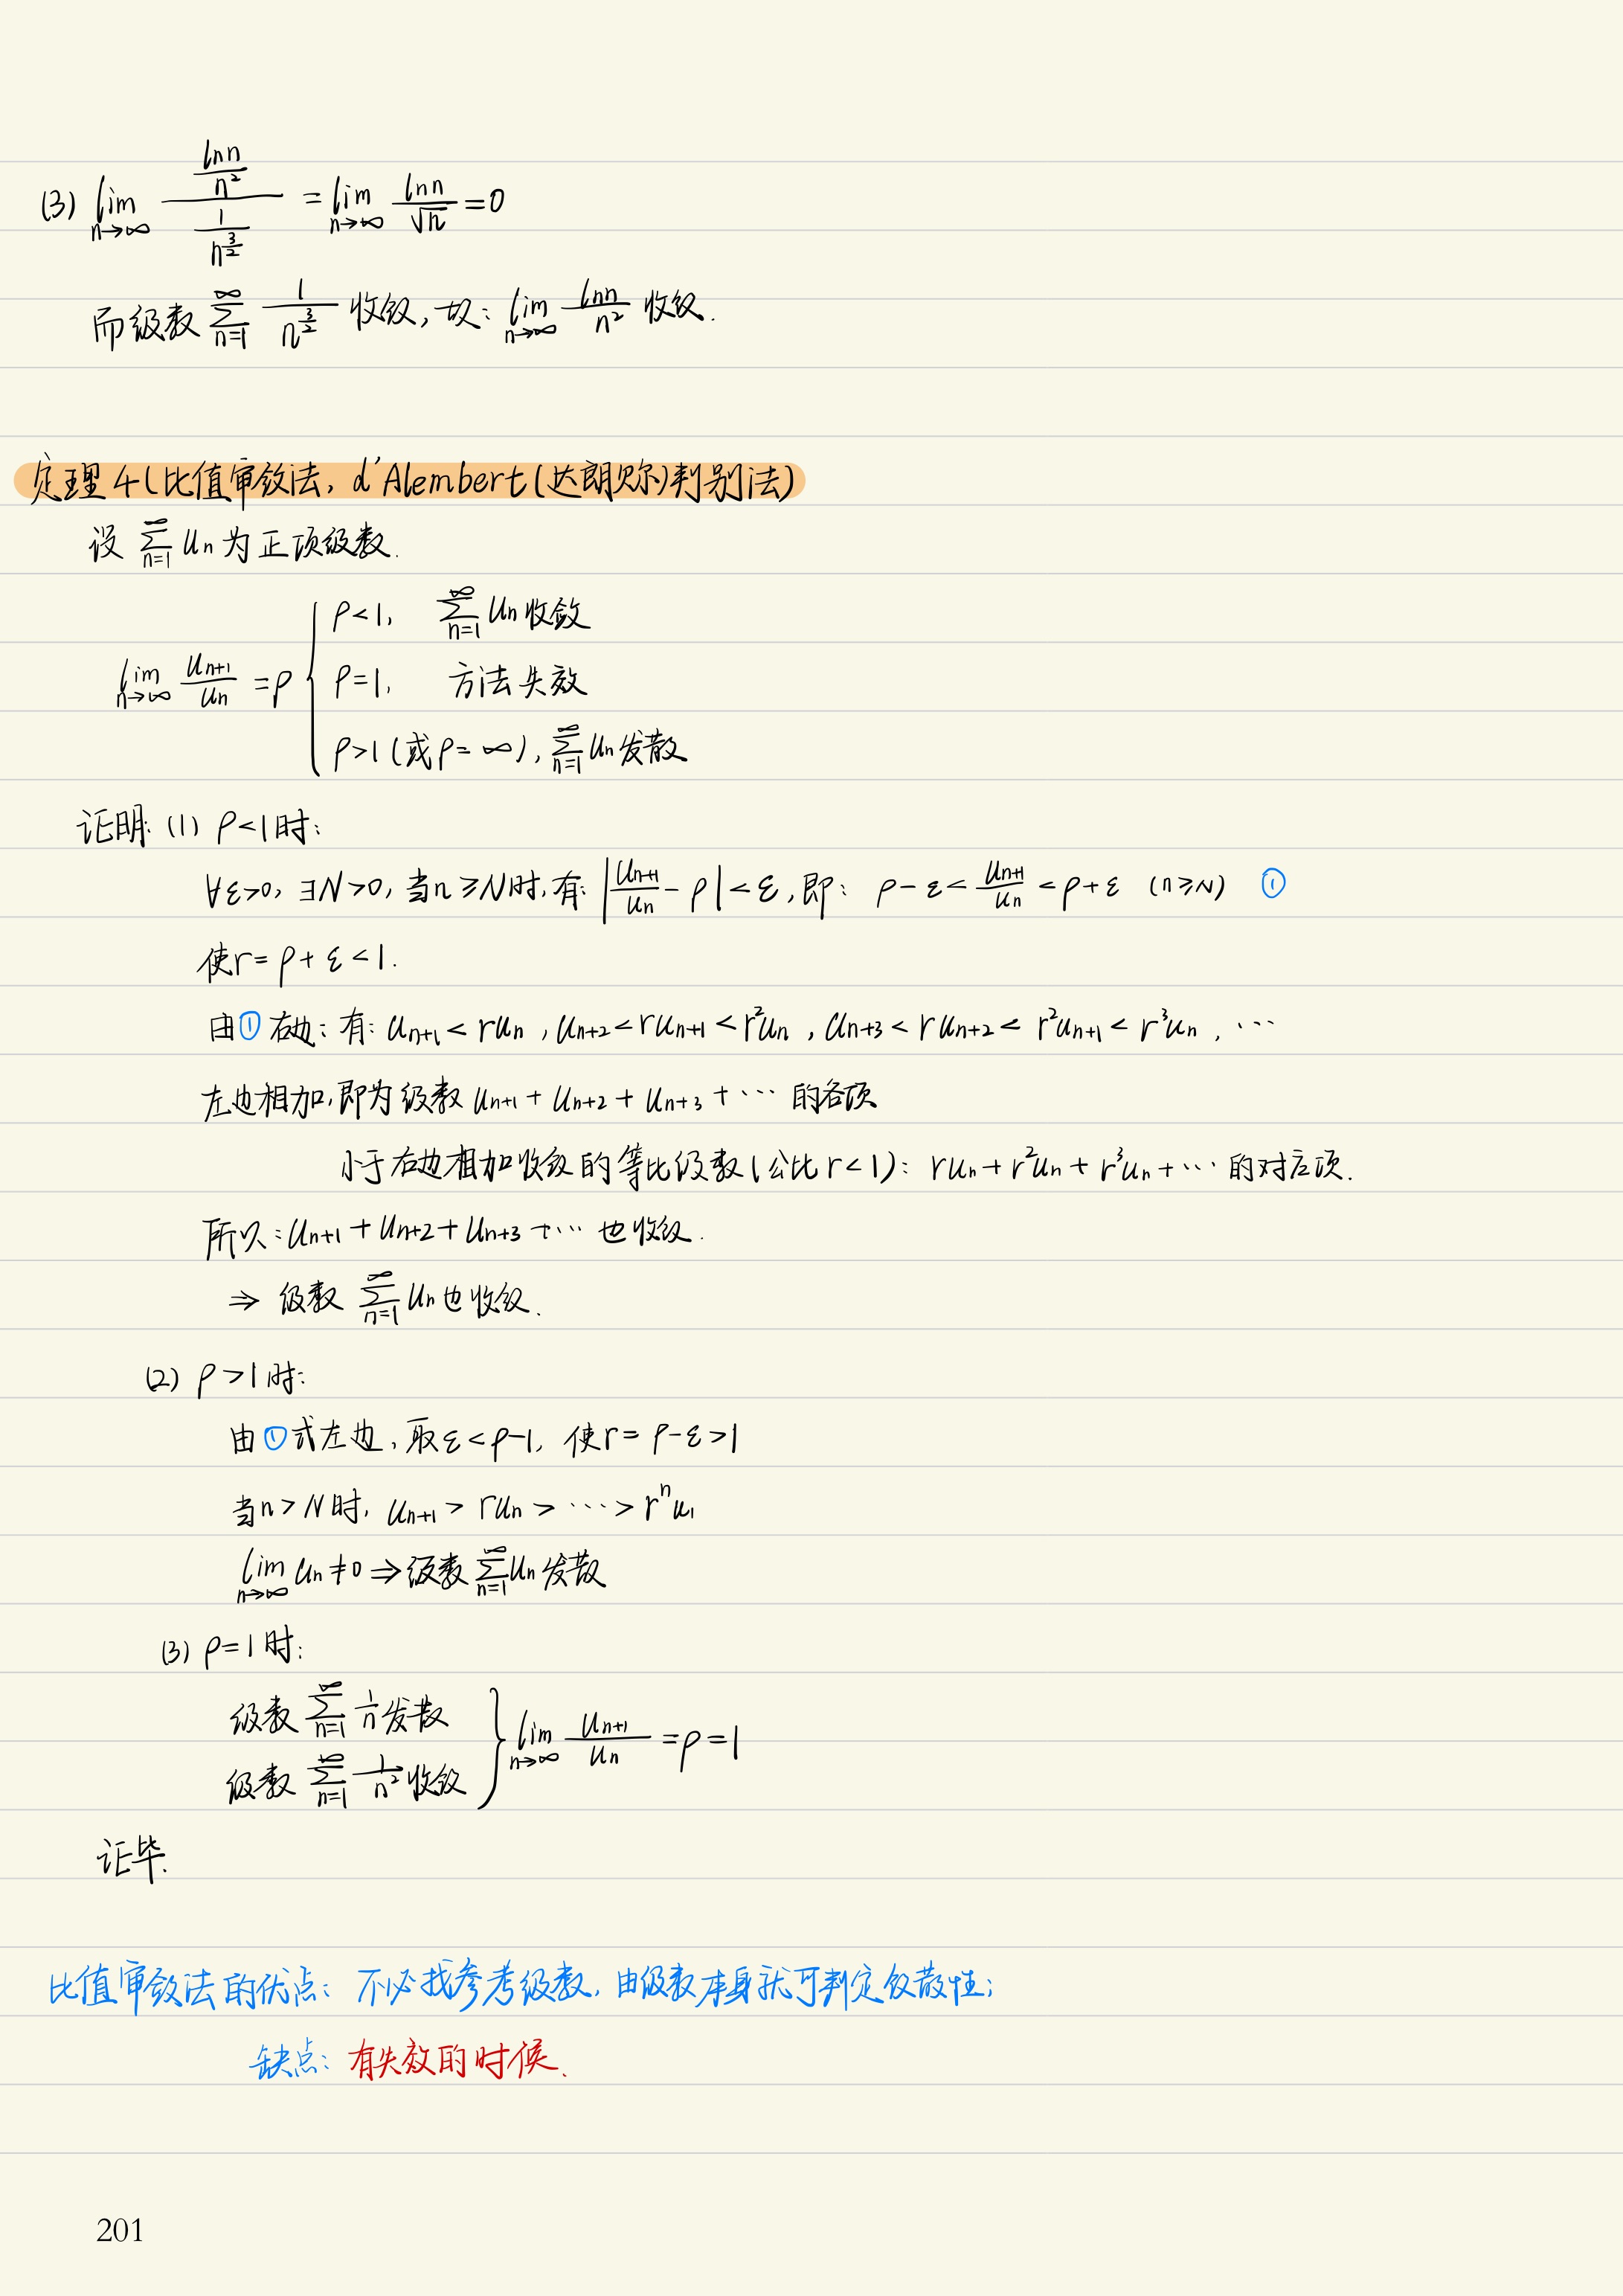 (3) lim_{n→∞} (ln n / n²) / (1 / n^{3/2}) = lim_{n→∞} ln n / √n = 0
而级数 ∑_{n=1}^{∞} 1/n^{3/2} 收敛, 故: lim_{n→∞} ln n / n² 收敛.
定理4(比值审敛法, d'Alembert(达朗贝尔)判别法)
设 ∑_{n=1}^{∞} uₙ 为正项级数.
lim_{n→∞} u_{n+1}/uₙ = ρ {
ρ<1, ∑_{n=1}^{∞} uₙ 收敛
ρ=1, 方法失效
ρ>1 (或ρ=∞), ∑_{n=1}^{∞} uₙ 发散
证明: (1) ρ<1时:
∀ε>0, ∃N>0, 当n≥N时, 有: |u_{n+1}/uₙ - ρ| < ε, 即: ρ-ε < u_{n+1}/uₙ < ρ+ε (n≥N) ①
使r=ρ+ε<1.
由①右边: 有: u_{n+1} < ruₙ, u_{n+2} < ru_{n+1} < r²uₙ, u_{n+3} < ru_{n+2} < r²u_{n+1} < r³uₙ, ⋯
左边相加, 即为级数 u_{n+1} + u_{n+2} + u_{n+3} + ⋯ 的各项
小于右边相加收敛的等比级数(公比r<1): ruₙ + r²uₙ + r³uₙ + ⋯ 的对应项.
所以: u_{n+1} + u_{n+2} + u_{n+3} + ⋯ 也收敛.
⇒ 级数 ∑_{n=1}^{∞} uₙ 也收敛.
(2) ρ>1时:
由①式左边, 取ε<ρ-1, 使r=ρ-ε>1
当n>N时, u_{n+1} > ruₙ > ⋯ > rⁿu₁
lim_{n→∞} uₙ ≠ 0 ⇒ 级数 ∑_{n=1}^{∞} uₙ 发散
(3) ρ=1时:
级数 ∑_{n=1}^{∞} 1/n 发散
级数 ∑_{n=1}^{∞} 1/n² 收敛
} lim_{n→∞} u_{n+1}/uₙ = ρ = 1
证毕.
比值审敛法的优点: 不必找参考级数, 由级数本身就可判定敛散性;
缺点: 有失效的时候.
201